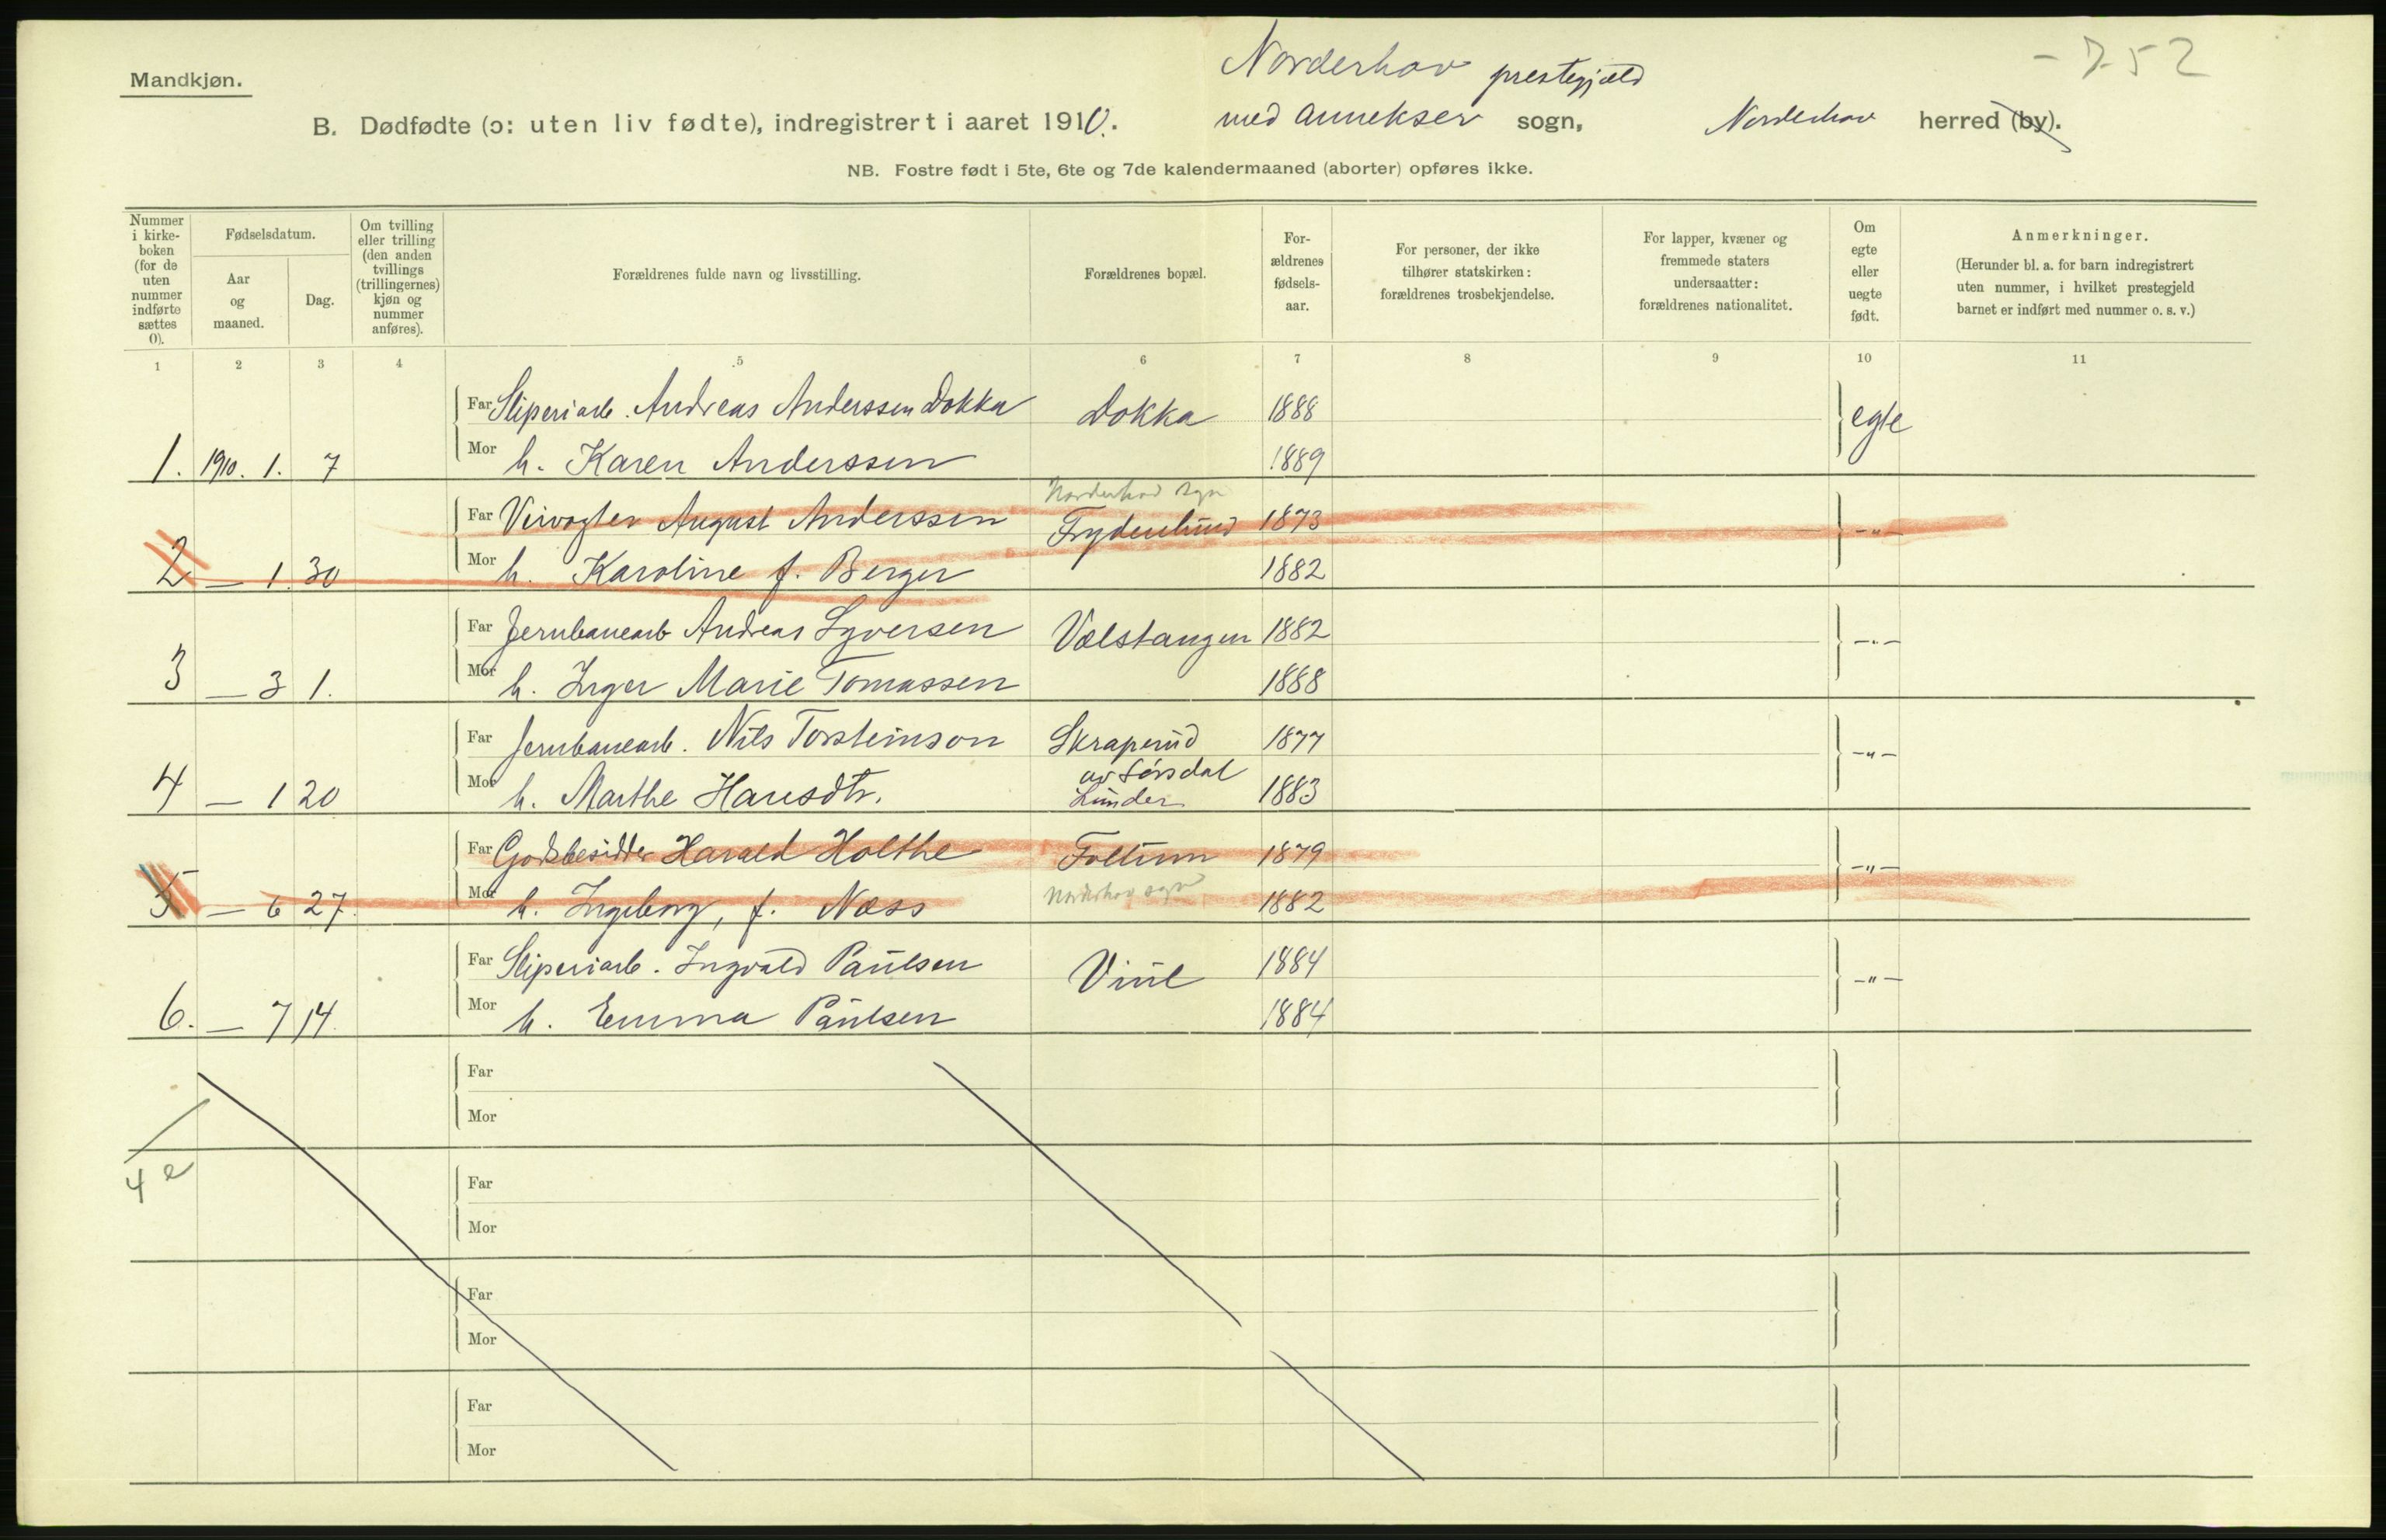 Norderhov prestegjæld - 752
Mandkjøn.
B. Dødfødte (ɔ: uten liv fødte), indregistrert i aaret 1910. med annekser sogn, Norderhov herred (by).
NB. Fostre født i 5te, 6te og 7de kalendermaaned (aborter) opføres ikke.
Nummer i kirke-boken (for de uten nummer indførte sættes 0).
Fødselsdatum.
Aar og maaned.
Dag.
Om tvilling eller trilling (den anden tvillings (trillingernes) kjøn og nummer anføres).
Forældrenes fulde navn og livsstilling.
Forældrenes bopæl.
For-ældrenes fødsels-aar.
For personer, der ikke tilhører statskirken: forældrenes trosbekjendelse.
For lapper, kvæner og fremmede staters undersaatter: forældrenes nationalitet.
Om egte eller uegte født.
Anmerkninger.
(Herunder bl. a. for barn indregistrert uten nummer, i hvilket prestegjeld barnet er indført med nummer o. s. v.)
1 2 3 4 5 6 7 8 9 10 11
Far Sliperiarb. Andreas Anderssen Dokka Dokka 1888 egte
1. 1910. 1. 7 Mor h. Karen Anderssen 1889
Norderhov sogn
Far Veivogter August Anderssen Frydenlund 1873 -"-
2 — 1. 30 Mor h. Karoline f. Berger 1882
Far Jernbanearb Andreas Syversen Vælstangen 1882 -"-
3 — 3 1. Mor h. Inger Marie Tomassen 1888
Far Jernbanearb. Nils Torsteinson Skraperud 1877 -"-
av Sørsdal
4 — 1 20 Mor h. Marthe Hansdtr. Lunder 1883
Far Godsbesidder Harald Holthe Follum 1879 -"-
5 — 6 27. Mor h. Ingeborg, f. Næss Norderhov sogn 1882
Far Sliperiarb. Ingvald Paulsen Viul 1884 -"-
6. — 7 14. Mor h. Emma Paulsen 1884
Far
Mor
4 e
Far
Mor
Far
Mor
Far
Mor